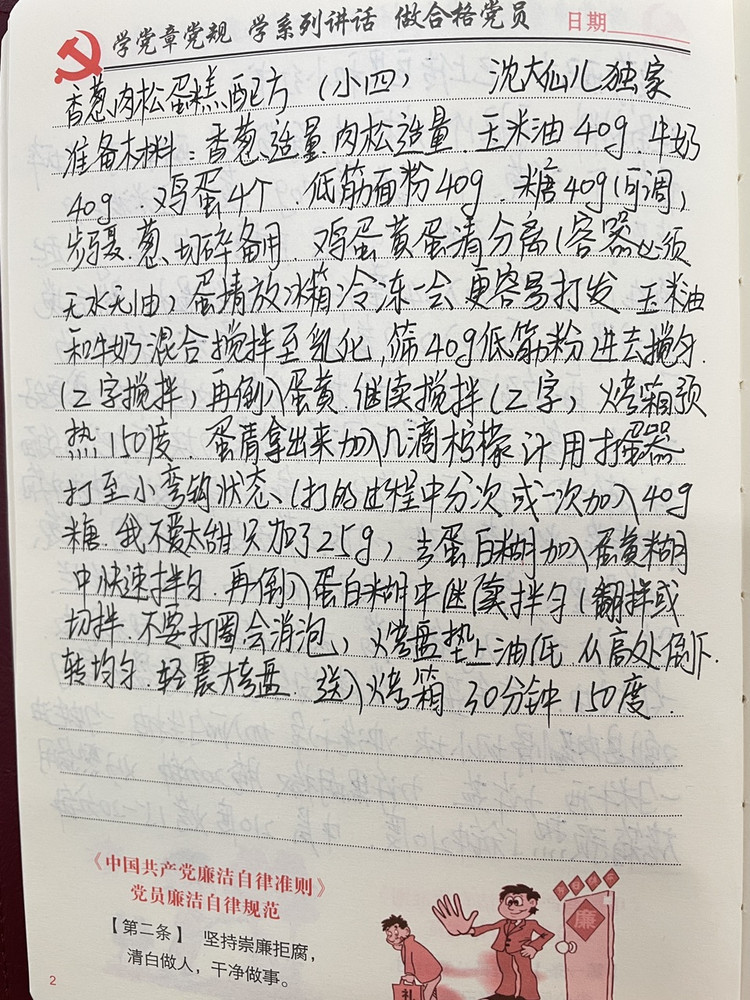 学党章党规 学系列讲话 做合格党员 日期
香葱肉松蛋糕配方 (小四) 沈大仙儿独家
准备材料:香葱适量.肉松适量.玉米油40g.牛奶
40g.鸡蛋4个.低筋面粉40g.糖40g(可调)
步骤.葱.切碎备用.鸡蛋黄蛋清分离(容器必须
无水无油)蛋清放冰箱冷冻一会更容易打发 玉米油
和牛奶混合搅拌至乳化,筛40g低筋粉进去搅匀.
(Z字搅拌)再倒入蛋黄.继续搅拌(Z字)烤箱预
热150度.蛋清拿出来加入几滴柠檬汁用打蛋器
打至小弯钩状态、(打的过程中分次或一次加入40g
糖.我不爱太甜只加了25g)去蛋白糊加入蛋黄糊
中快速拌匀.再倒入蛋白糊中继续拌匀(翻拌或
切拌.不要打圈会消泡)烤盘垫上油纸 从高处倒下.
转均匀.轻震大烤盘.送入烤箱 30分钟150度.
《中国共产党廉洁自律准则》
党员廉洁自律规范
【第二条】 坚持崇廉拒腐,
清白做人,干净做事。
廉
礼
2